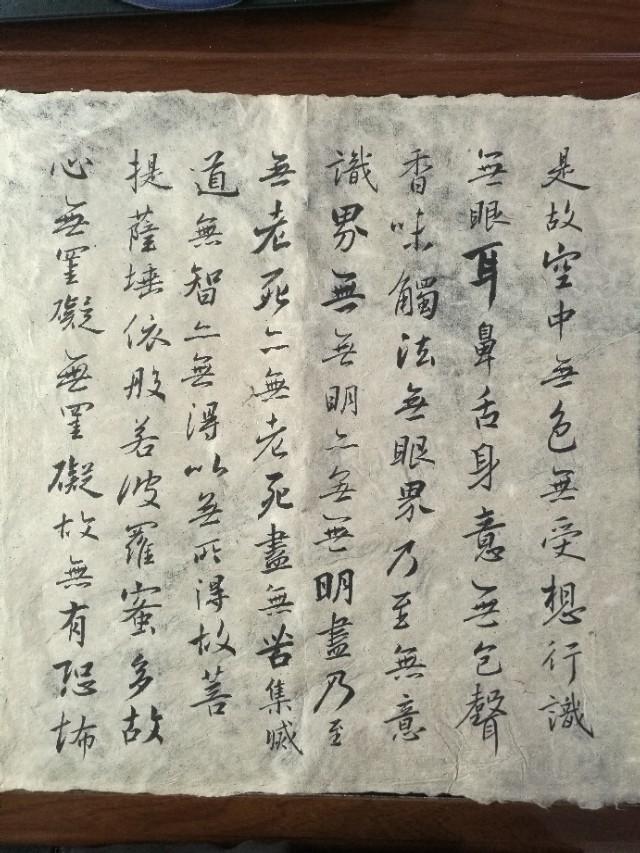 是故空中無色無受想行識
無眼耳鼻舌身意無色聲
香味觸法無眼界乃至無意
識界無無明亦無無明盡乃至
無老死亦無老死盡無苦集滅
道無智亦無得以無所得故菩
提薩埵依般若波羅蜜多故
心無罣礙無罣礙故無有恐怖